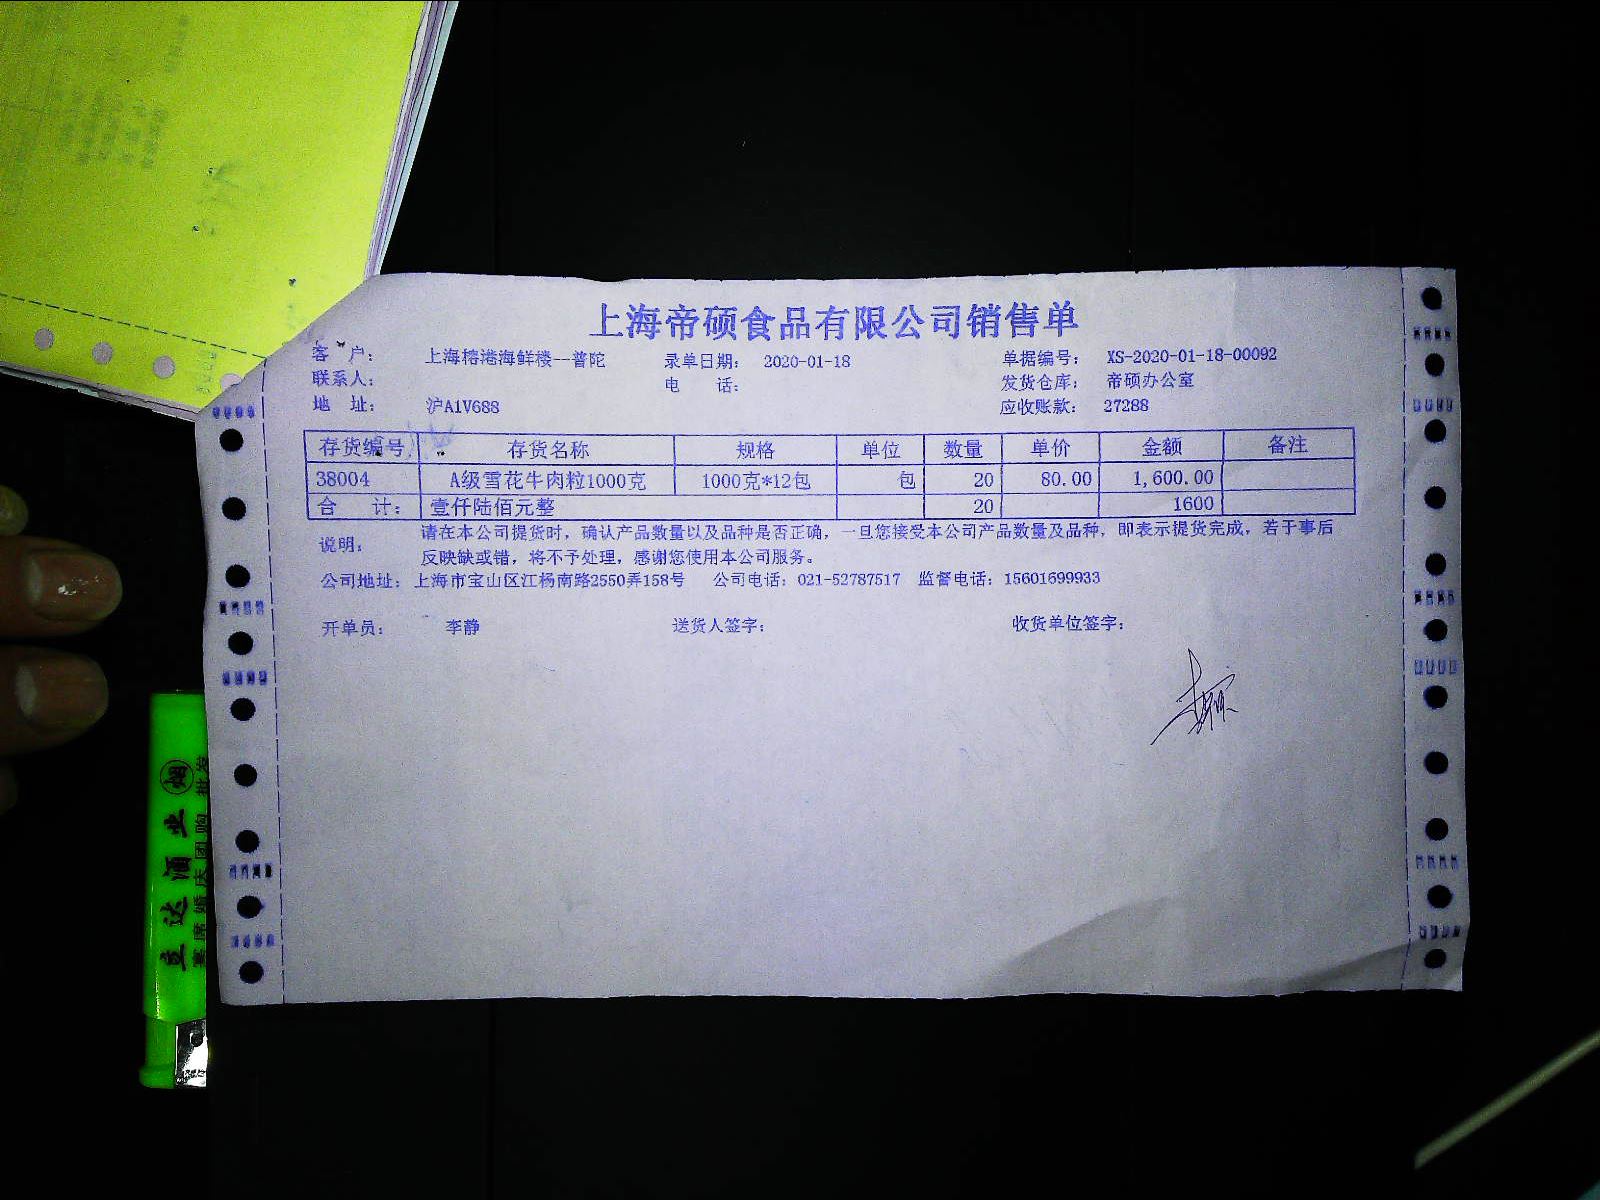 上海帝硕食品有限公司销售单
客 户： 上海榕港海鲜楼--普陀 录单日期： 2020-01-18 单据编号： XS-2020-01-18-00092
联系人： 电 话： 发货仓库： 帝硕办公室
地 址： 沪A1V688 应收账款： 27288
存货编号 存货名称 规格 单位 数量 单价 金额 备注
38004 A级雪花牛肉粒1000克 1000克*12包 包 20 80.00 1,600.00
合 计： 壹仟陆佰元整 20 1600
说明： 请在本公司提货时，确认产品数量以及品种是否正确，一旦您接受本公司产品数量及品种，即表示提货完成，若于事后
反映缺或错，将不予处理，感谢您使用本公司服务。
公司地址：上海市宝山区江杨南路2550弄158号 公司电话：021-52787517 监督电话：15601699933
开单员： 李静 送货人签字： 收货单位签字：
壹达酒业 烟
宴席婚庆团购 批发